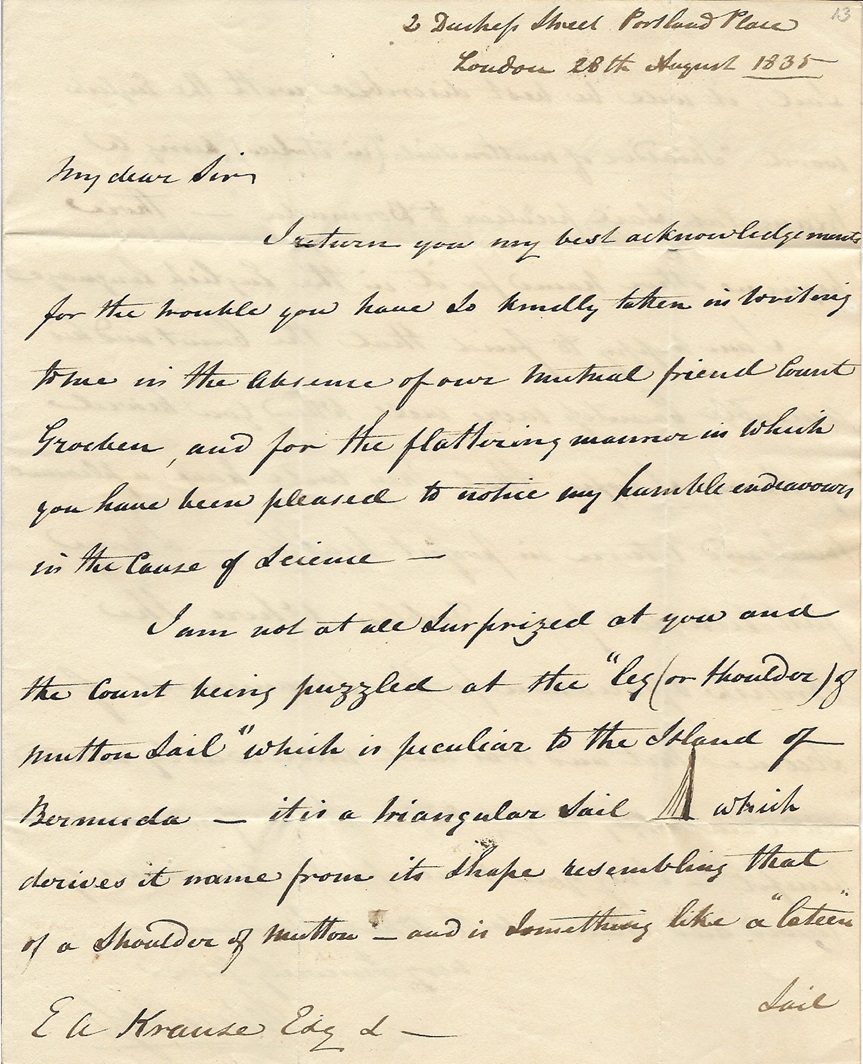 13
2 Duchess Street Portland Place
London 28th August 1835
My dear Sir,
I return you my best acknowledgements
for the trouble you have so kindly taken in writing
to me in the absence of our mutual friend Count
Groeben, and for the flattering manner in which
you have been pleased to notice my humble endeavours
in the Cause of Science —
I am not at all surprized at you and
the Count being puzzled at the "leg (or shoulder) of
mutton Sail" which is peculiar to the Island of
Bermuda — it is a triangular sail which
derives it name from its shape resembling that
of a shoulder of mutton — and is something like a "lateen"
Sail
E A Krause Esq &c —